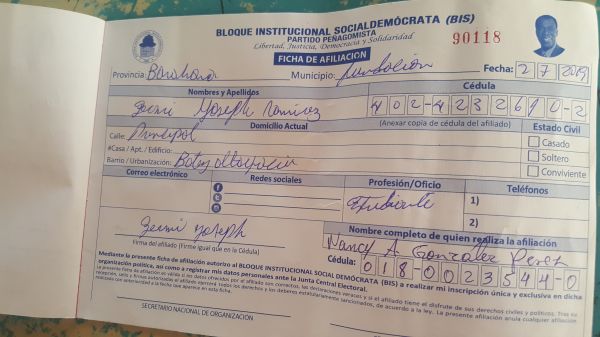 BLOQUE INSTITUCIONAL SOCIALDEMÓCRATA (BIS)
PARTIDO PEÑAGOMISTA
Libertad, Justicia, Democracia y Solidaridad
90118
FICHA DE AFILIACIÓN
Provincia: Barahona Municipio: Fundación Fecha: 2 7 2019
Nombres y Apellidos Cédula
Joseph Ramirez 402-4232610-2
Domicilio Actual (Anexar copia de cédula del afiliado) Estado Civil
Calle: Principal Casado
#Casa / Apt. / Edificio: Soltero
Barrio / Urbanización: Batey Conviviente
Correo electrónico Redes sociales Profesión/Oficio Teléfonos
Estudiante 1)
2)
Joseph
Firma del afiliado (Firme igual que en la Cédula)
Nombre completo de quien realiza la afiliación
Nancy A. González Pérez
Cédula: 018-0023544-0
Mediante la presente ficha de afiliación autorizo al BLOQUE INSTITUCIONAL SOCIALDEMÓCRATA (BIS) a realizar mi inscripción única y exclusiva en dicha
organización política, así como a registrar mis datos personales ante la Junta Central Electoral.
SECRETARIO NACIONAL DE ORGANIZACIÓN
PRESIDENTE